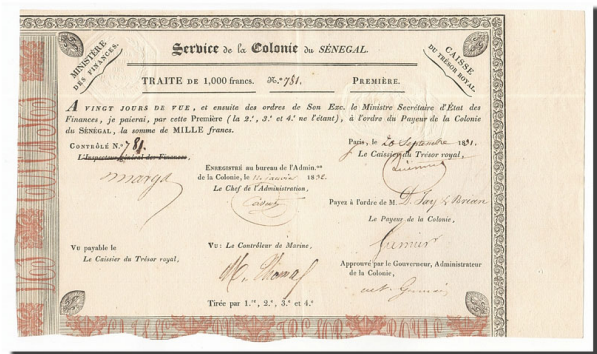 MINISTÈRE
DES FINANCES.
Service de la Colonie du SÉNEGAL.
CAISSE
DU TRÉSOR ROYAL
TRAITE DE 1,000 francs. N.º 781. PREMIÈRE.
A VINGT JOURS DE VUE, et ensuite des ordres de Son Exc. le Ministre Secrétaire d'État des
Finances, je paierai, par cette Première (la 2.ª, 3.ª et 4.ª ne l'étant), à l'ordre du Payeur de la Colonie
du SÉNEGAL, la somme de MILLE francs.
Paris, le 20 Septembre 1831.
CONTRÔLÉ N.º 781.
Le Caissier du Trésor royal,
L'Inspecteur Général des Finances,
ENREGISTRÉ au bureau de l'Admin.ᵒⁿ
de la Colonie, le Janvier 1832
Le Chef de l'Administration,
PAYEZ à l'ordre de M.
Le Payeur de la Colonie,
VU payable le
Le Caissier du Trésor royal,
VU : Le Contrôleur de Marine,
APPROUVÉ par le Gouverneur, Administrateur
de la Colonie,
Tirée par 1.ʳᵉ, 2.ª, 3.ª et 4.ª